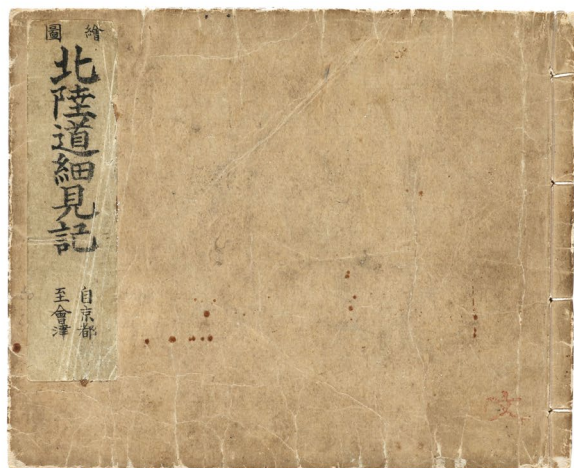 繪圖
北陸道細見記
自京都
至會津
文